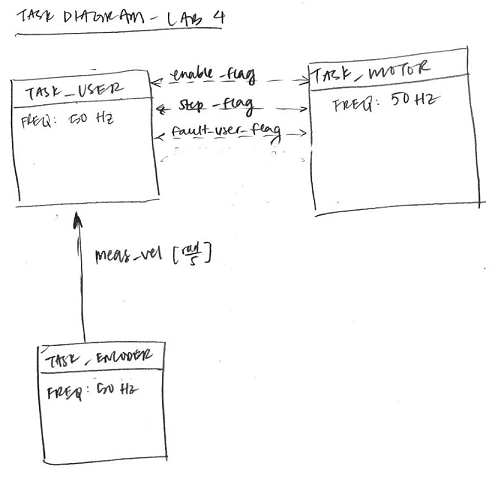 TASK DIAGRAM - LAB 4
TASK_USER
FREQ: 50 Hz
enable_flag
step_flag
fault_user_flag
TASK_MOTOR
FREQ: 50 Hz
meas_vel [rad/s]
TASK_ENCODER
FREQ: 50 Hz